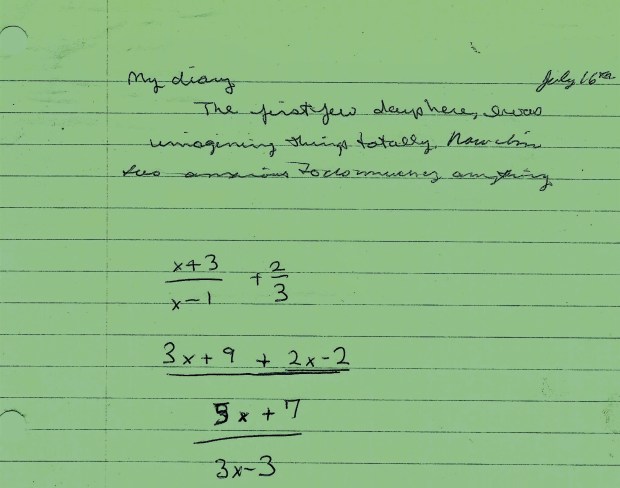 My diary July 16th
The first few days here, I was
imagining things totally. Now I'm
too anxious to do much of anything
x+3
x-1
+ 2
3
3x + 9 + 2x - 2
5x + 7
3x - 3